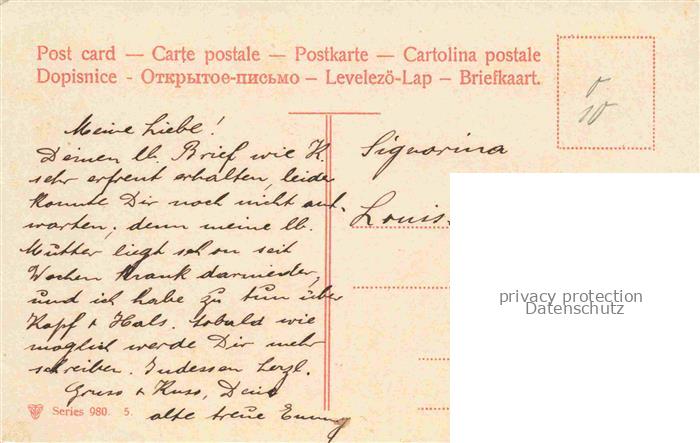 Post card — Carte postale — Postkarte — Cartolina postale
Dopisnice - Открытое-письмо – Levelezö-Lap – Briefkaart.
Meine Liebe!
Deinen lb. Brief wie K.
sehr erfreut erhalten, leider
konnte Dir noch nicht ant-
worten, denn meine lb.
Mutter liegt schon seit
Wochen krank darnieder,
und ich habe zu tun über
Kopf & Hals. sobald wie
möglich werde Dir mehr
schreiben. Indessen herzl.
Gruss & Kuss, Deine
alte treue Emmy
Series 980. 5.
Signorina
Louis
10
privacy protection
Datenschutz